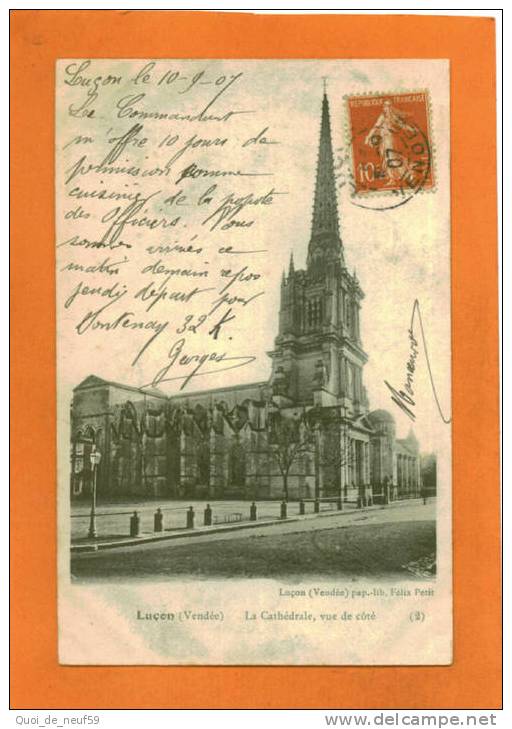 Luçon le 10-9-07
Le Commandant
m'offre 10 jours de
permission comme
cuisinier de la popote
des Officiers. Nous
sommes arrivés ce
matin demain repos
jeudi départ pour
Fontenay 32 K.
Georges
REPUBLIQUE FRANÇAISE
10
07
VENDÉE
Luçon (Vendée) pap.-lib. Félix Petit
Luçon (Vendée) La Cathédrale, vue de côté (2)
Quoi_de_neuf59
www.delcampe.net